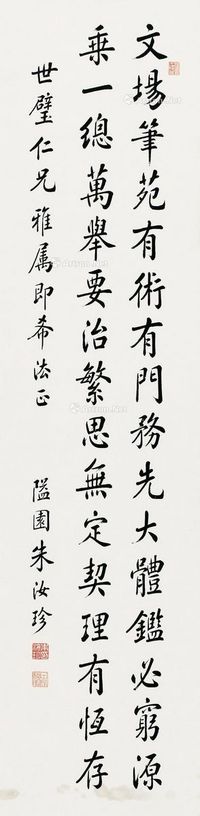 文場筆苑有術有門務先大體鑑必窮源
乘一總萬舉要治繁思無定契理有恆存
世璧仁兄雅属即希法正
隘園朱汝珍